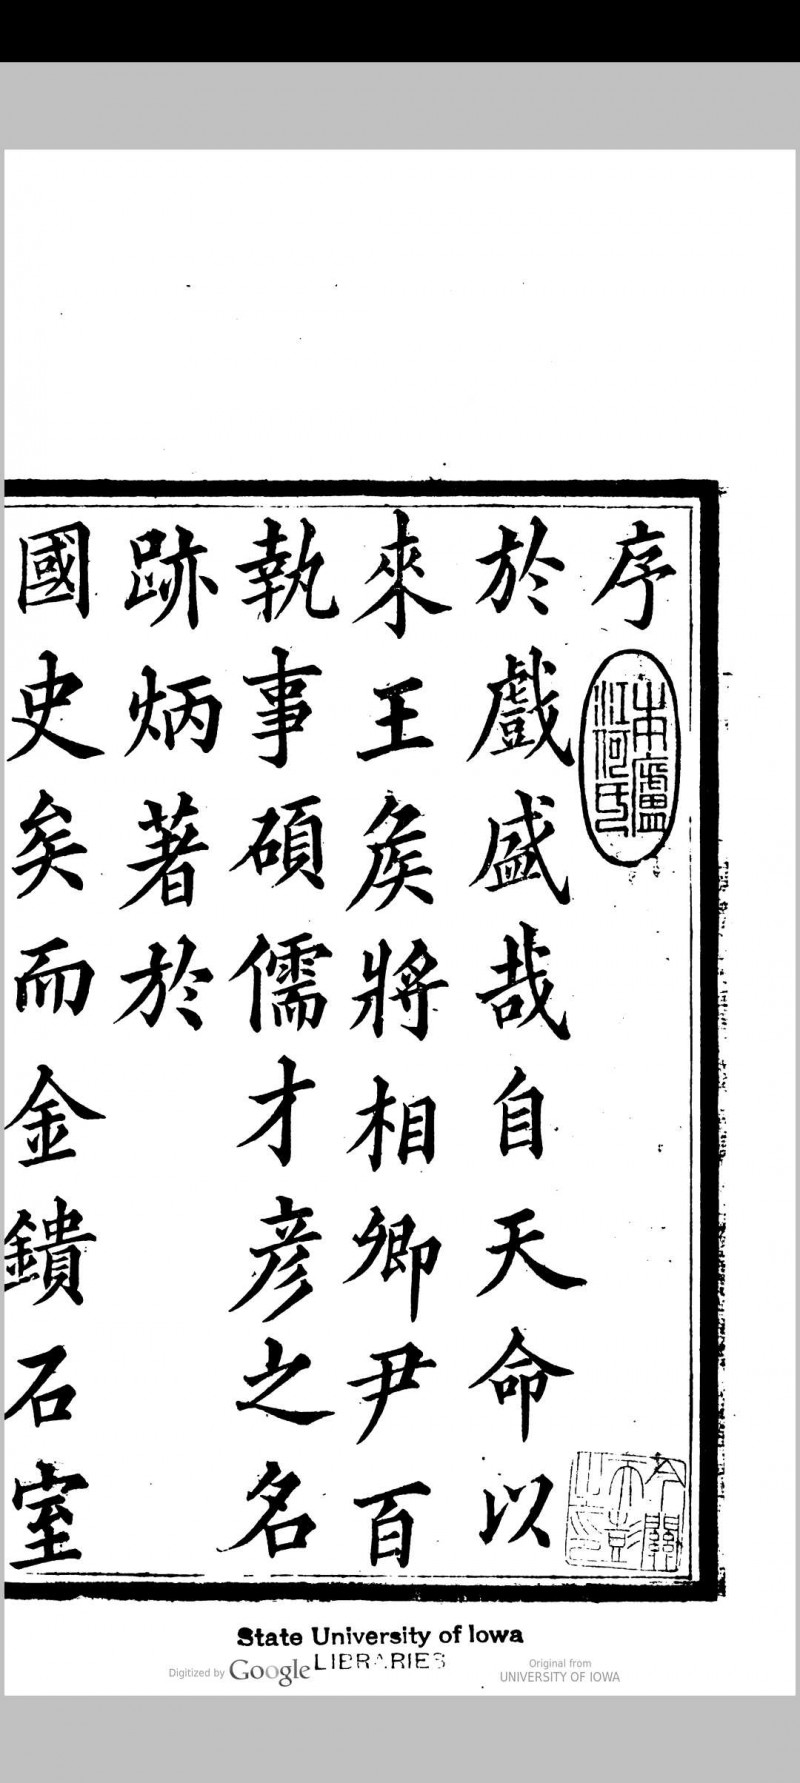 序
於戲盛哉自天命以
來王矦將相卿尹百
執事碩儒才彥之名
跡炳著於
國史矣而金鐀石室
State University of Iowa
LIBRARIES
Digitized by Google
Original from
UNIVERSITY OF IOWA